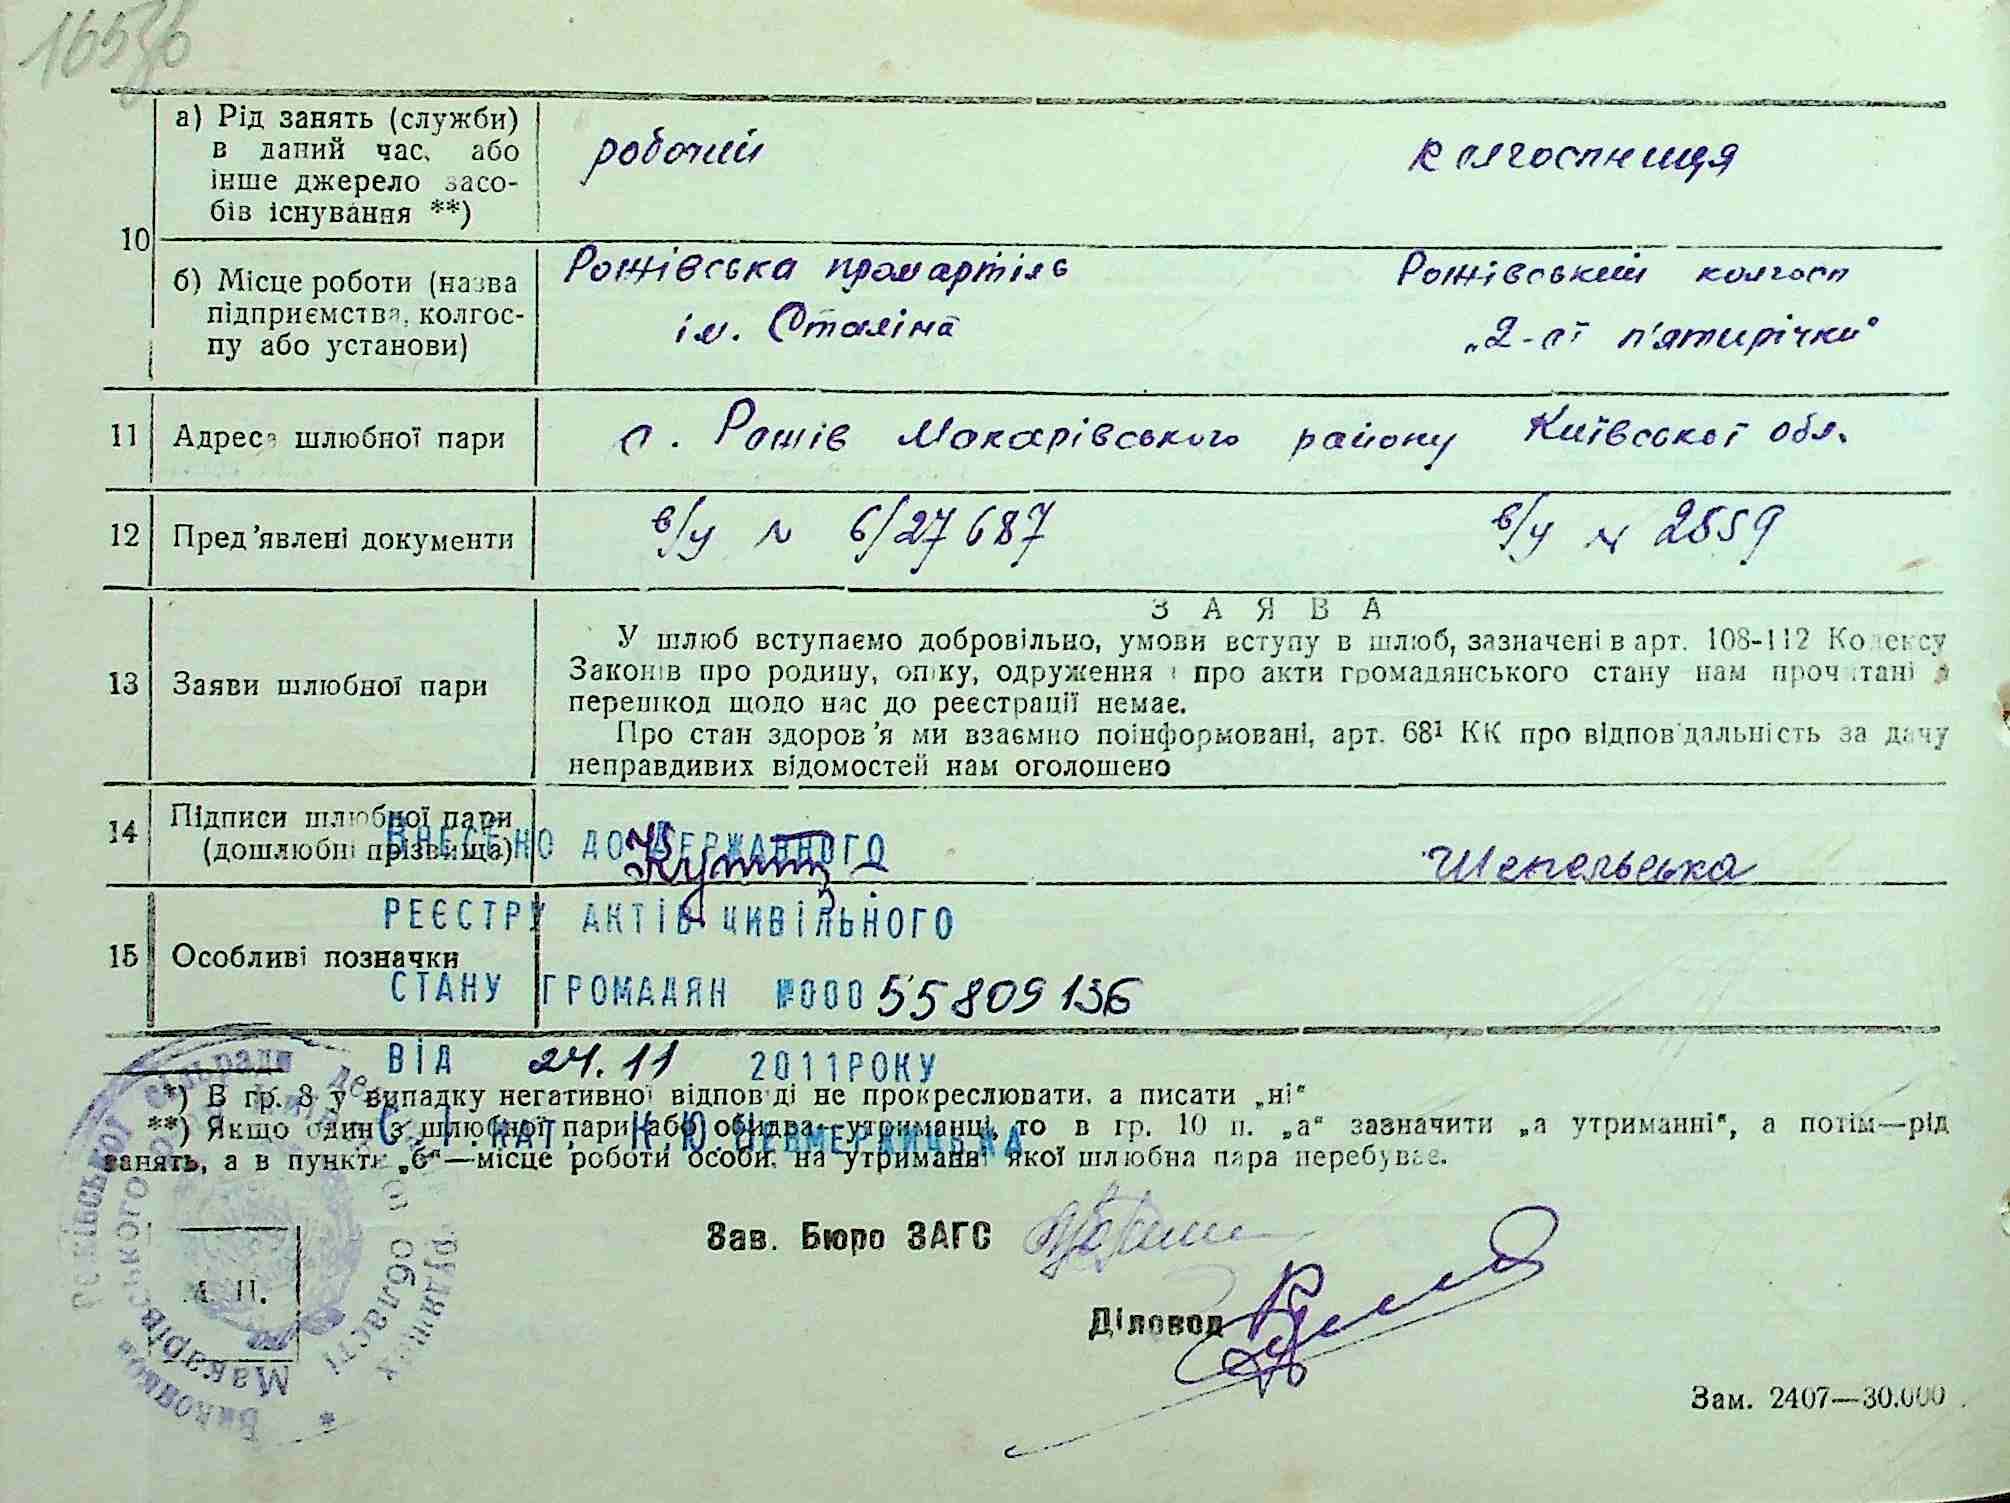 а) Рід занять (служби) в даний час, або інше джерело засо-
бів існування **)
робочий
колгоспниця
10
б) Місце роботи (назва
підприємства, колгос-
пу або установи)
Рожівська промартіль
ім. Сталіна
Рожівський колгосп
„2-ої п'ятирічки"
11 Адреса шлюбної пари
с. Рожів Макарівського району Київської обл.
12 Пред'явлені документи
в/у № 6/27687
в/у № 2559
13 Заяви шлюбної пари
ЗАЯВА
У шлюб вступаємо добровільно, умови вступу в шлюб, зазначені в арт. 108-112 Кодексу
Законів про родину, опіку, одруження і про акти громадянського стану нам прочитані і
перешкод щодо нас до реєстрації немає.
Про стан здоров'я ми взаємно поінформовані, арт. 68¹ КК про відповідальність за дачу
неправдивих відомостей нам оголошено
14 Підписи шлюбної пари
(дошлюбні прізвища)
Шепельська
15 Особливі позначки
ВНЕСЕНО ДО ДЕРЖАВНОГО
РЕЄСТРУ АКТІВ ЦИВІЛЬНОГО
СТАНУ ГРОМАДЯН №000 55809136
ВІД 24.11 2011РОКУ
*) В гр. 8 у випадку негативної відповіді не прокреслювати, а писати „ні"
**) Якщо один з шлюбної пари або обидва—утриманці, то в гр. 10 п. „а" зазначити „а утриманні", а потім—рід
занять, а в пункті „б"—місце роботи особи, на утриманні якої шлюбна пара перебуває.
Зав. Бюро ЗАГС
М. П.
Діловод
Виконком
Макарівського
області
Зам. 2407—30.000